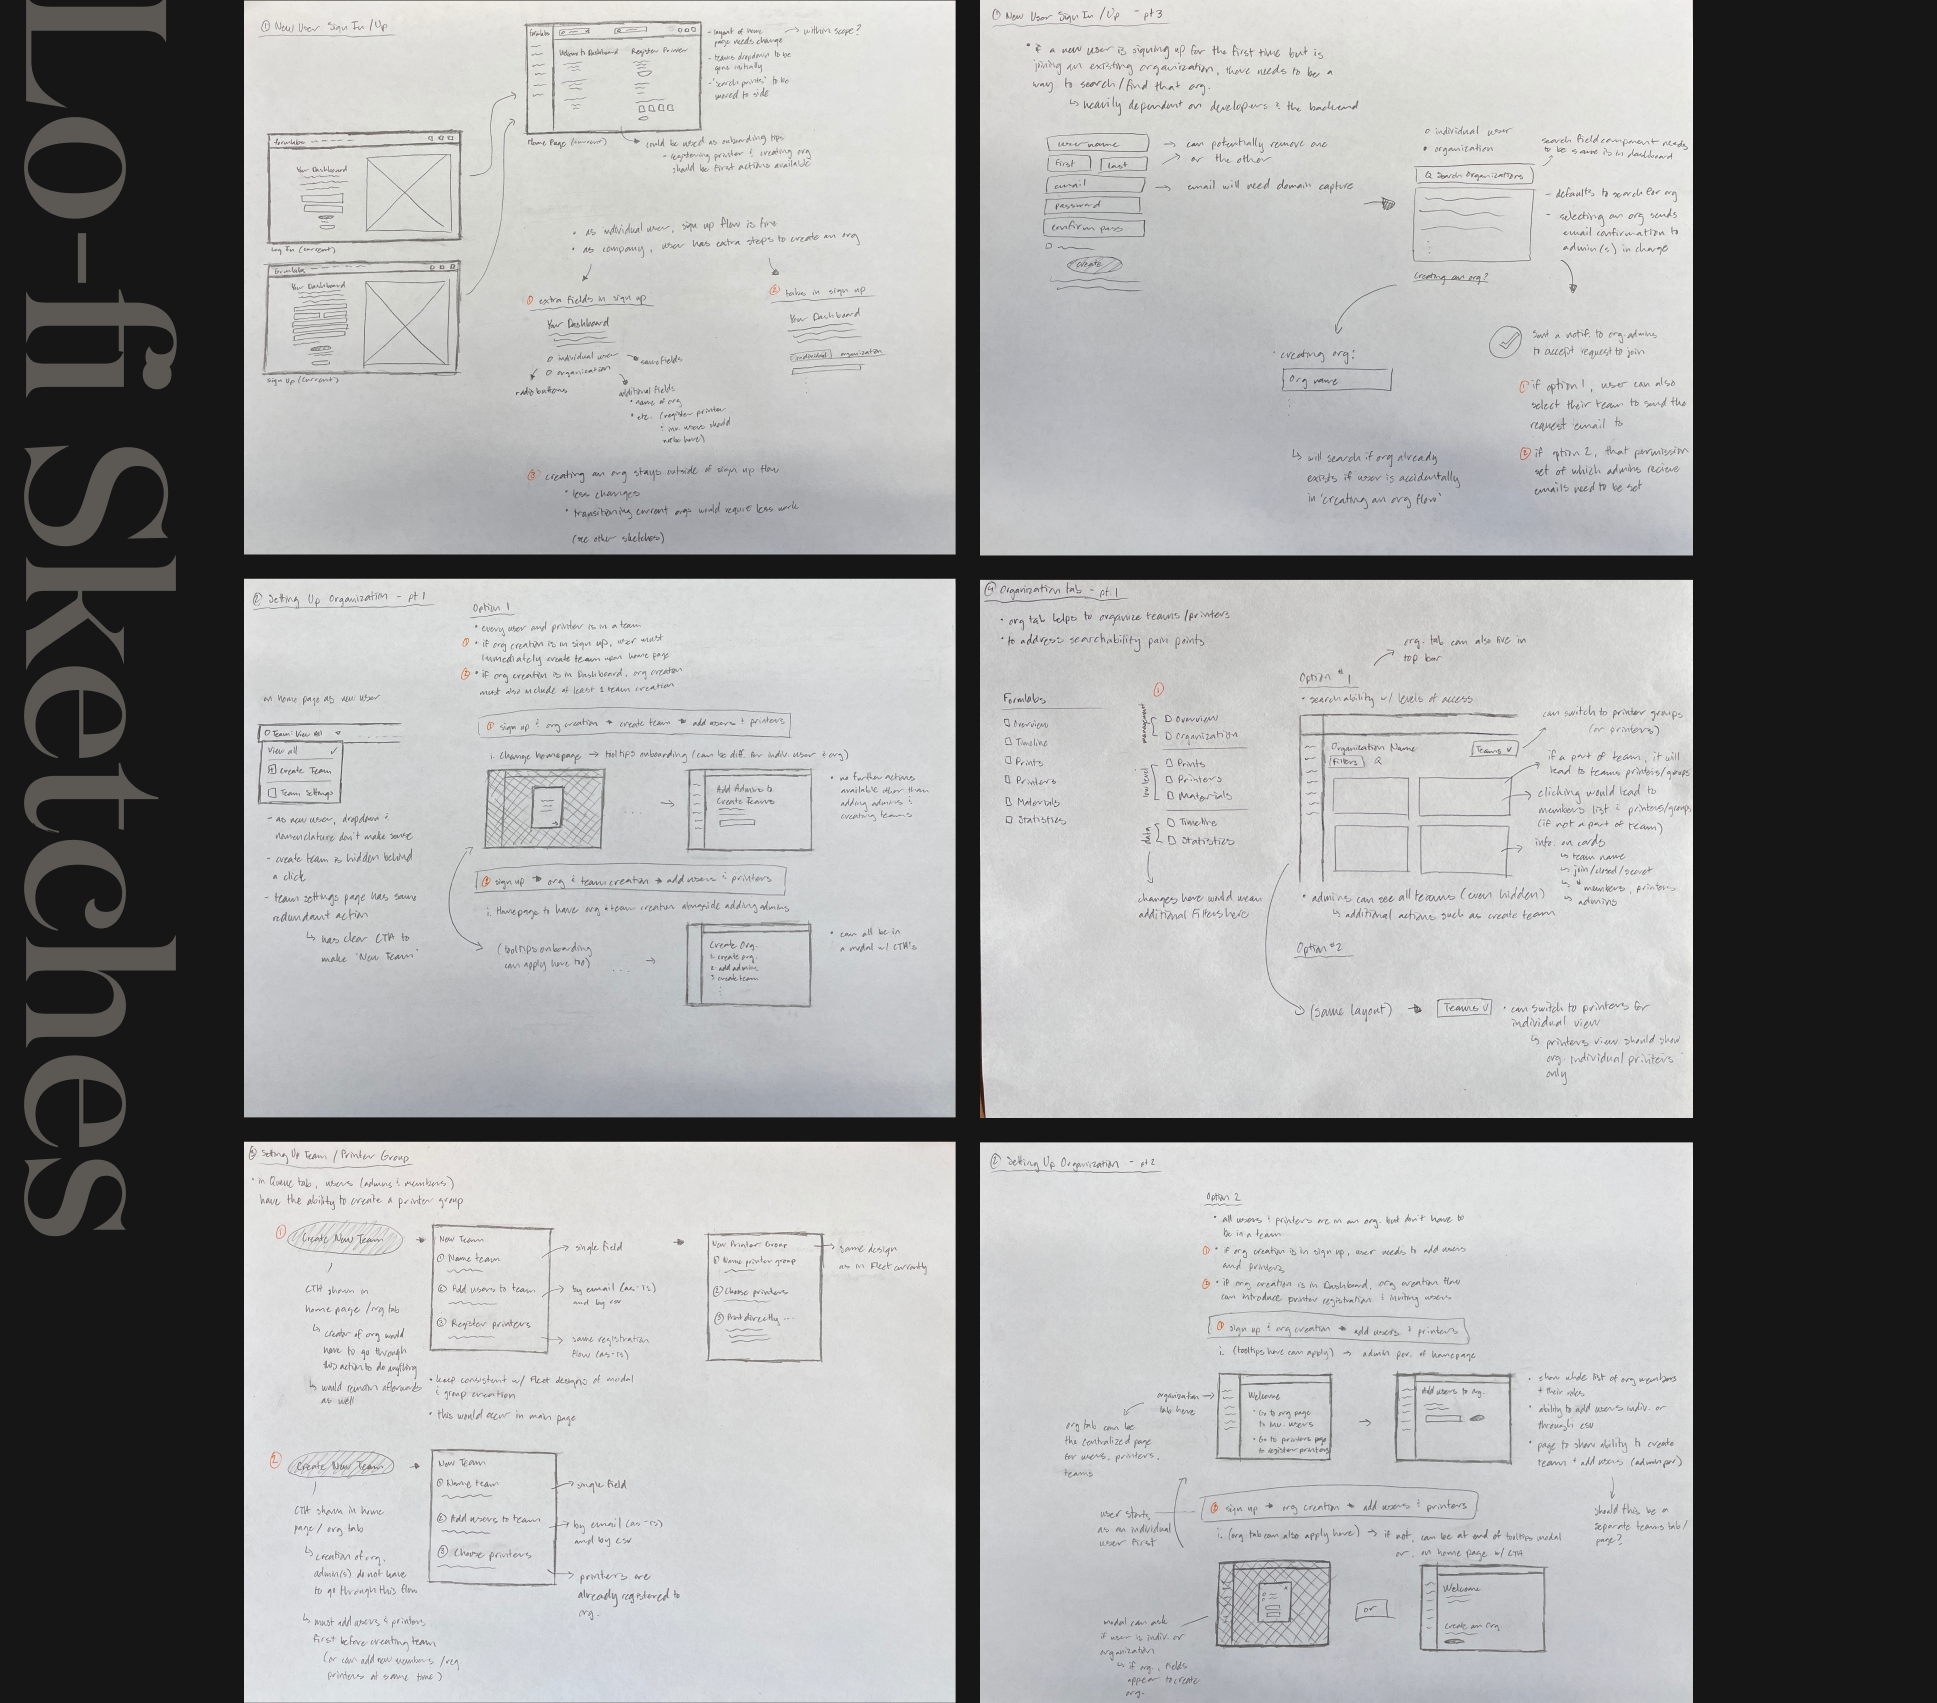 Lo-fi Sketches
① New User Sign In/Up
formlabs
Your Dashboard
Log In (current)
formlabs
Your Dashboard
Sign Up (current)
formlabs
Welcome to Dashboard
Register Printer
Home Page (current)
- layout of home
page needs change
→ within scope?
- teams dropdown to be
gone initially
- 'search prints' to be
moved to side
could be used as onboarding tips
- registering printer & creating org
should be first actions available
• as individual user, sign up flow is fine
• as company, user has extra steps to create an org
① extra fields in sign up
Your Dashboard
o individual user
same fields
o organization
radio buttons
additional fields
• name of org
• etc. (register printer
& inv. users should
not be here)
② tabs in sign up
Your Dashboard
individual
organization
③ creating an org stays outside of sign up flow
• less changes
• transitioning current orgs would require less work
(see other sketches)
① New User Sign In/Up - pt 3
• if a new user is signing up for the first time but is
joining an existing organization, there needs to be a
way to search/find that org.
↳ heavily dependant on developers & the backend
username
→ can potentially remove one
or the other
first
last
email
→ email will need domain capture
password
confirm pass
create
o individual user
• organization
search field component needs
to be same as in dashboard
Search Organizations
- defaults to search for org
- selecting an org sends
email confirmation to
admin(s) in charge
Creating an org?
• creating org:
Org name
↳ will search if org already
exists if user is accidentally
in 'creating an org flow'
Sent a notif. to org admins
to accept request to join
① if option 1, user can also
select their team to send the
request email to
② if option 2, that permission
set of which admins recieve
emails need to be set
② Setting Up Organization - pt 1
Option 1
• every user and printer is in a team
① • if org creation is in sign up, user must
immediately create team upon home page
② • if org creation is in Dashboard, org creation
must also include at least 1 team creation
on home page as new user
Team: View All
View all
Create Team
Team Settings
- as new user, dropdown &
nomenclature don't make sense
- create team is hidden behind
a click
- team settings page has same
redundant action
↳ has clear CTA to
make 'New Team'
① sign up & org creation → create team → add users & printers
i. Change homepage → tooltips onboarding (can be diff. for indiv. user & org)
Add Admins to
Create Teams
• no further actions
available other than
adding admins &
creating teams
② sign up → org & team creation → add users & printers
i. Homepage to have org & team creation alongside adding admins
(tooltips onboarding
can apply here too)
Create Org.
1. create org.
2. add admins
3. create team
• can all be in
a modal w/ CTA's
④ Organization tab - pt. 1
• org tab helps to organize teams/printers
• to address searchability pain points
Formlabs
Overview
Timeline
Prints
Printers
Materials
Statistics
①
management
Overview
Organization
low level
Prints
Printers
Materials
data
Timeline
Statistics
changes here would mean
additional filters here
org. tab can also live in
top bar
Option #1
• searchability w/ levels of access
Organization Name
Teams v
filters
can switch to printer groups
(or printers)
if a part of team, it will
lead to teams printers/groups
clicking would lead to
members list & printers/groups
(if not a part of team)
info. on cards
↳ team name
↳ join/closed/secret
↳ # members, printers
↳ admins
• admins can see all teams (even hidden)
↳ additional actions such as create team
Option #2
(same layout)
Teams v
• can switch to printers for
individual view
↳ printers view should show
org. individual printers
only
③ Setting Up Team / Printer Group
• in Queue tab, users (admins & members)
have the ability to create a printer group
① Create New Team
CTA shown in
home page /org tab
↳ creator of org would
have to go through
this action to do anything
↳ would remain afterwards
as well
New Team
① Name team
② Add users to team
③ Register printers
single field
by email (as-is)
and by csv
same registration
flow (as-is)
New Printer Group
① Name printer group
② Choose printers
③ Print directly ...
same design
as in Fleet currently
• keep consistent w/ Fleet designs of modal
& group creation
• this would occur in main page
② Create New Team
CTA shown in home
page / org tab
↳ creation of org,
admin(s) do not have
to go through this flow
↳ must add users & printers
first before creating team
(or can add new members /reg
printers at same time)
New Team
① Name team
② Add users to team
③ Choose printers
single field
by email (as-is)
and by csv
printers are
already registered to
org.
② Setting Up Organization - pt 2
Option 2
• all users & printers are in an org. but don't have to
be in a team
① • if org creation is in sign up, user needs to add users
and printers
② • if org creation is in Dashboard, org creation flow
can introduce printer registration & inviting users
① sign up & org creation → add users & printers
i. (tooltips here can apply) → admin pov. of homepage
organization
tab here
org tab can be
the centralized page
for users, printers,
teams
Welcome
• Go to org page
to inv. users
• Go to printers page
to register printers
Add users to org.
• show whole list of org members
& their roles
• ability to add users indiv. or
through csv
• page to show ability to create
team & add users (admin pov)
should this be a
separate teams tab/
page?
user starts
as an individual
user first
② sign up → org creation → add users & printers
i. (org tab can also apply here) → if not, can be at end of tooltips modal
or on home page w/ CTA
modal can ask
if user is indiv. or
organization
↳ if org., fields
appear to create
org.
or
Welcome
Create an org